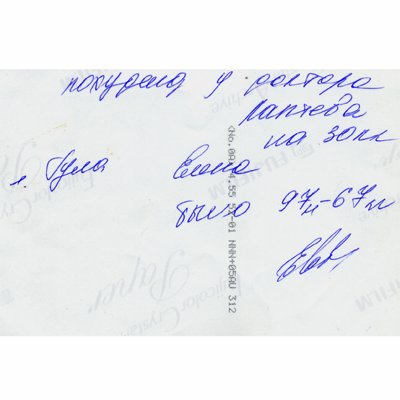 похудела у доктора
Лаптева
на 30 кг
г. Тула Елена
было 97кг-67кг
<No.0A 4.55 5A-01 NNN+05AU 312
FUJIFILM
Fujicolor Crystal
Archive
Paper